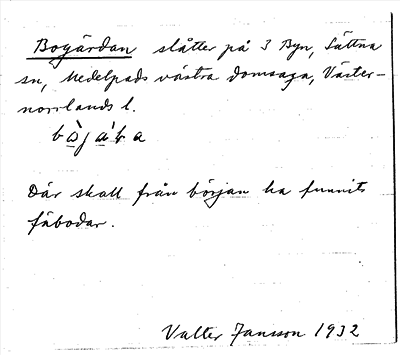 Bogärdan slåtter på 3 Byn, Sättna
sn, Medelpads västra domsaga, Väster-
norrlands l.
Där skall från början ha funnits
fäbodar.
Valter Jansson 1932